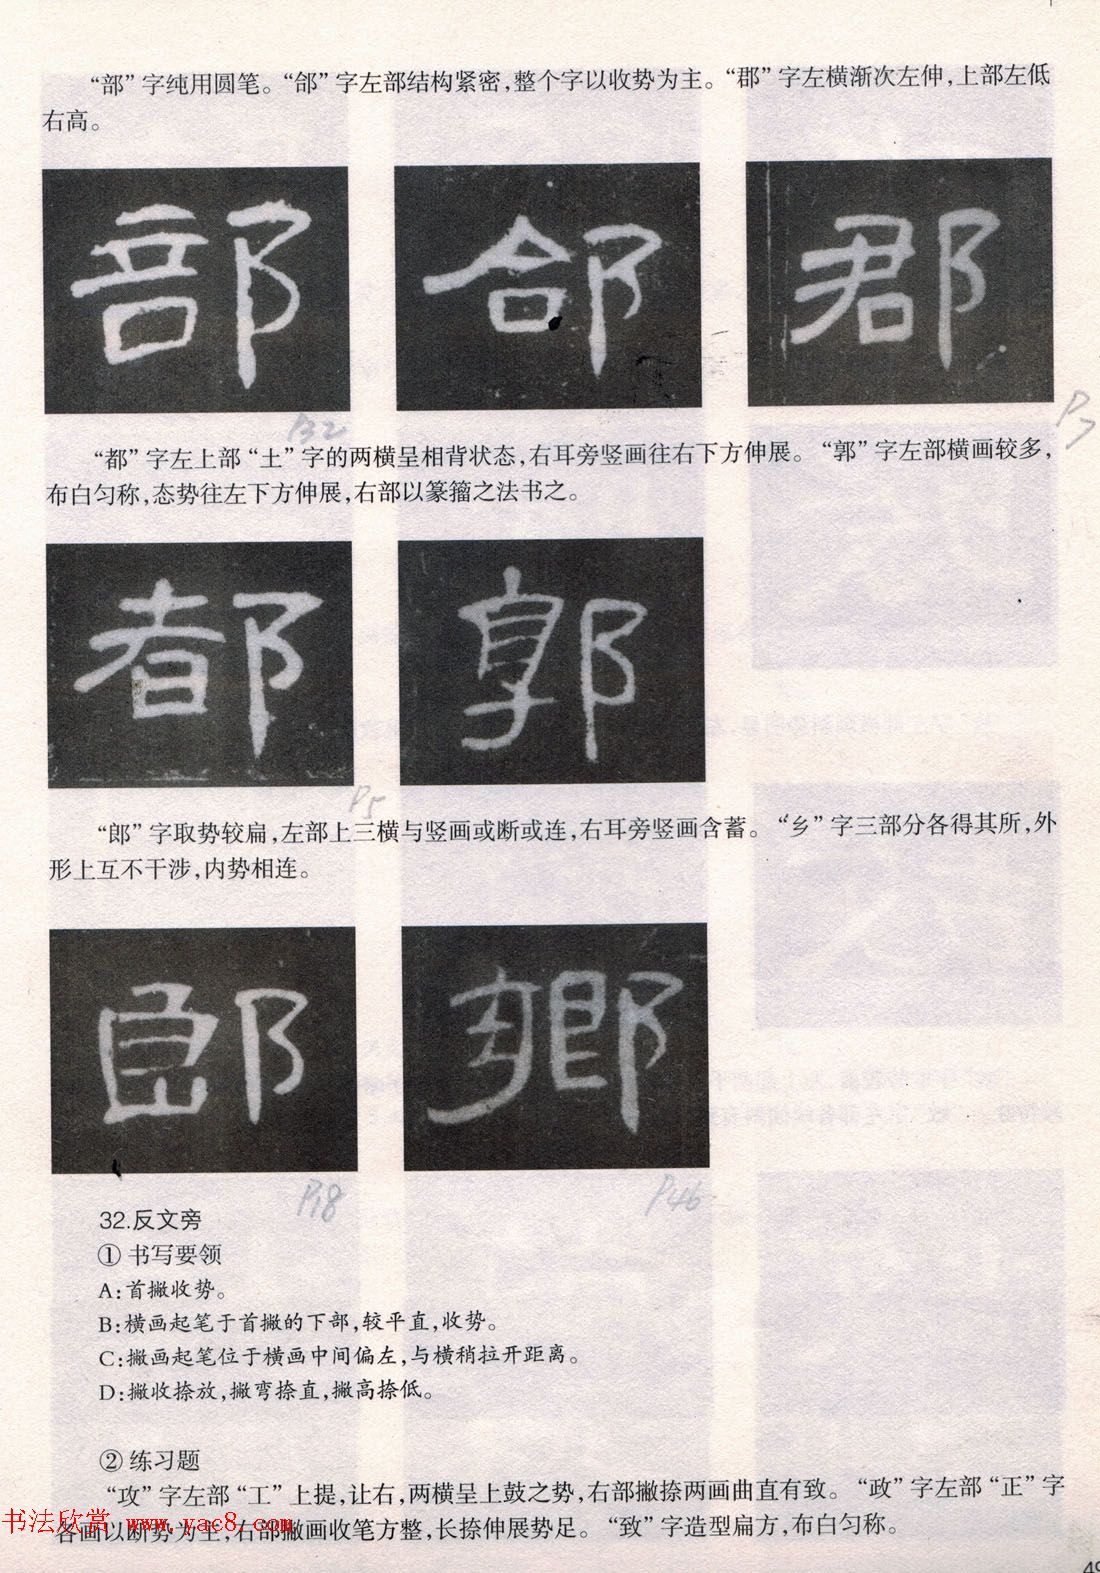 “部”字纯用圆笔。“郃”字左部结构紧密,整个字以收势为主。“郡”字左横渐次左伸,上部左低
右高。
部
郃
郡
P32
P7
“都”字左上部“土”字的两横呈相背状态,右耳旁竖画往右下方伸展。“郭”字左部横画较多,
布白匀称,态势往左下方伸展,右部以篆籀之法书之。
都
郭
P5
“郎”字取势较扁,左部上三横与竖画或断或连,右耳旁竖画含蓄。“乡”字三部分各得其所,外
形上互不干涉,内势相连。
郎
鄉
P18
P46
32.反文旁
① 书写要领
A:首撇收势。
B:横画起笔于首撇的下部,较平直,收势。
C:撇画起笔位于横画中间偏左,与横稍拉开距离。
D:撇收捺放,撇弯捺直,撇高捺低。
② 练习题
“攻”字左部“工”上提,让右,两横呈上鼓之势,右部撇捺两画曲直有致。“政”字左部“正”字
各画以断势为主,右部撇画收笔方整,长捺伸展势足。“致”字造型扁方,布白匀称。
书法欣赏 www.yac8.com
49